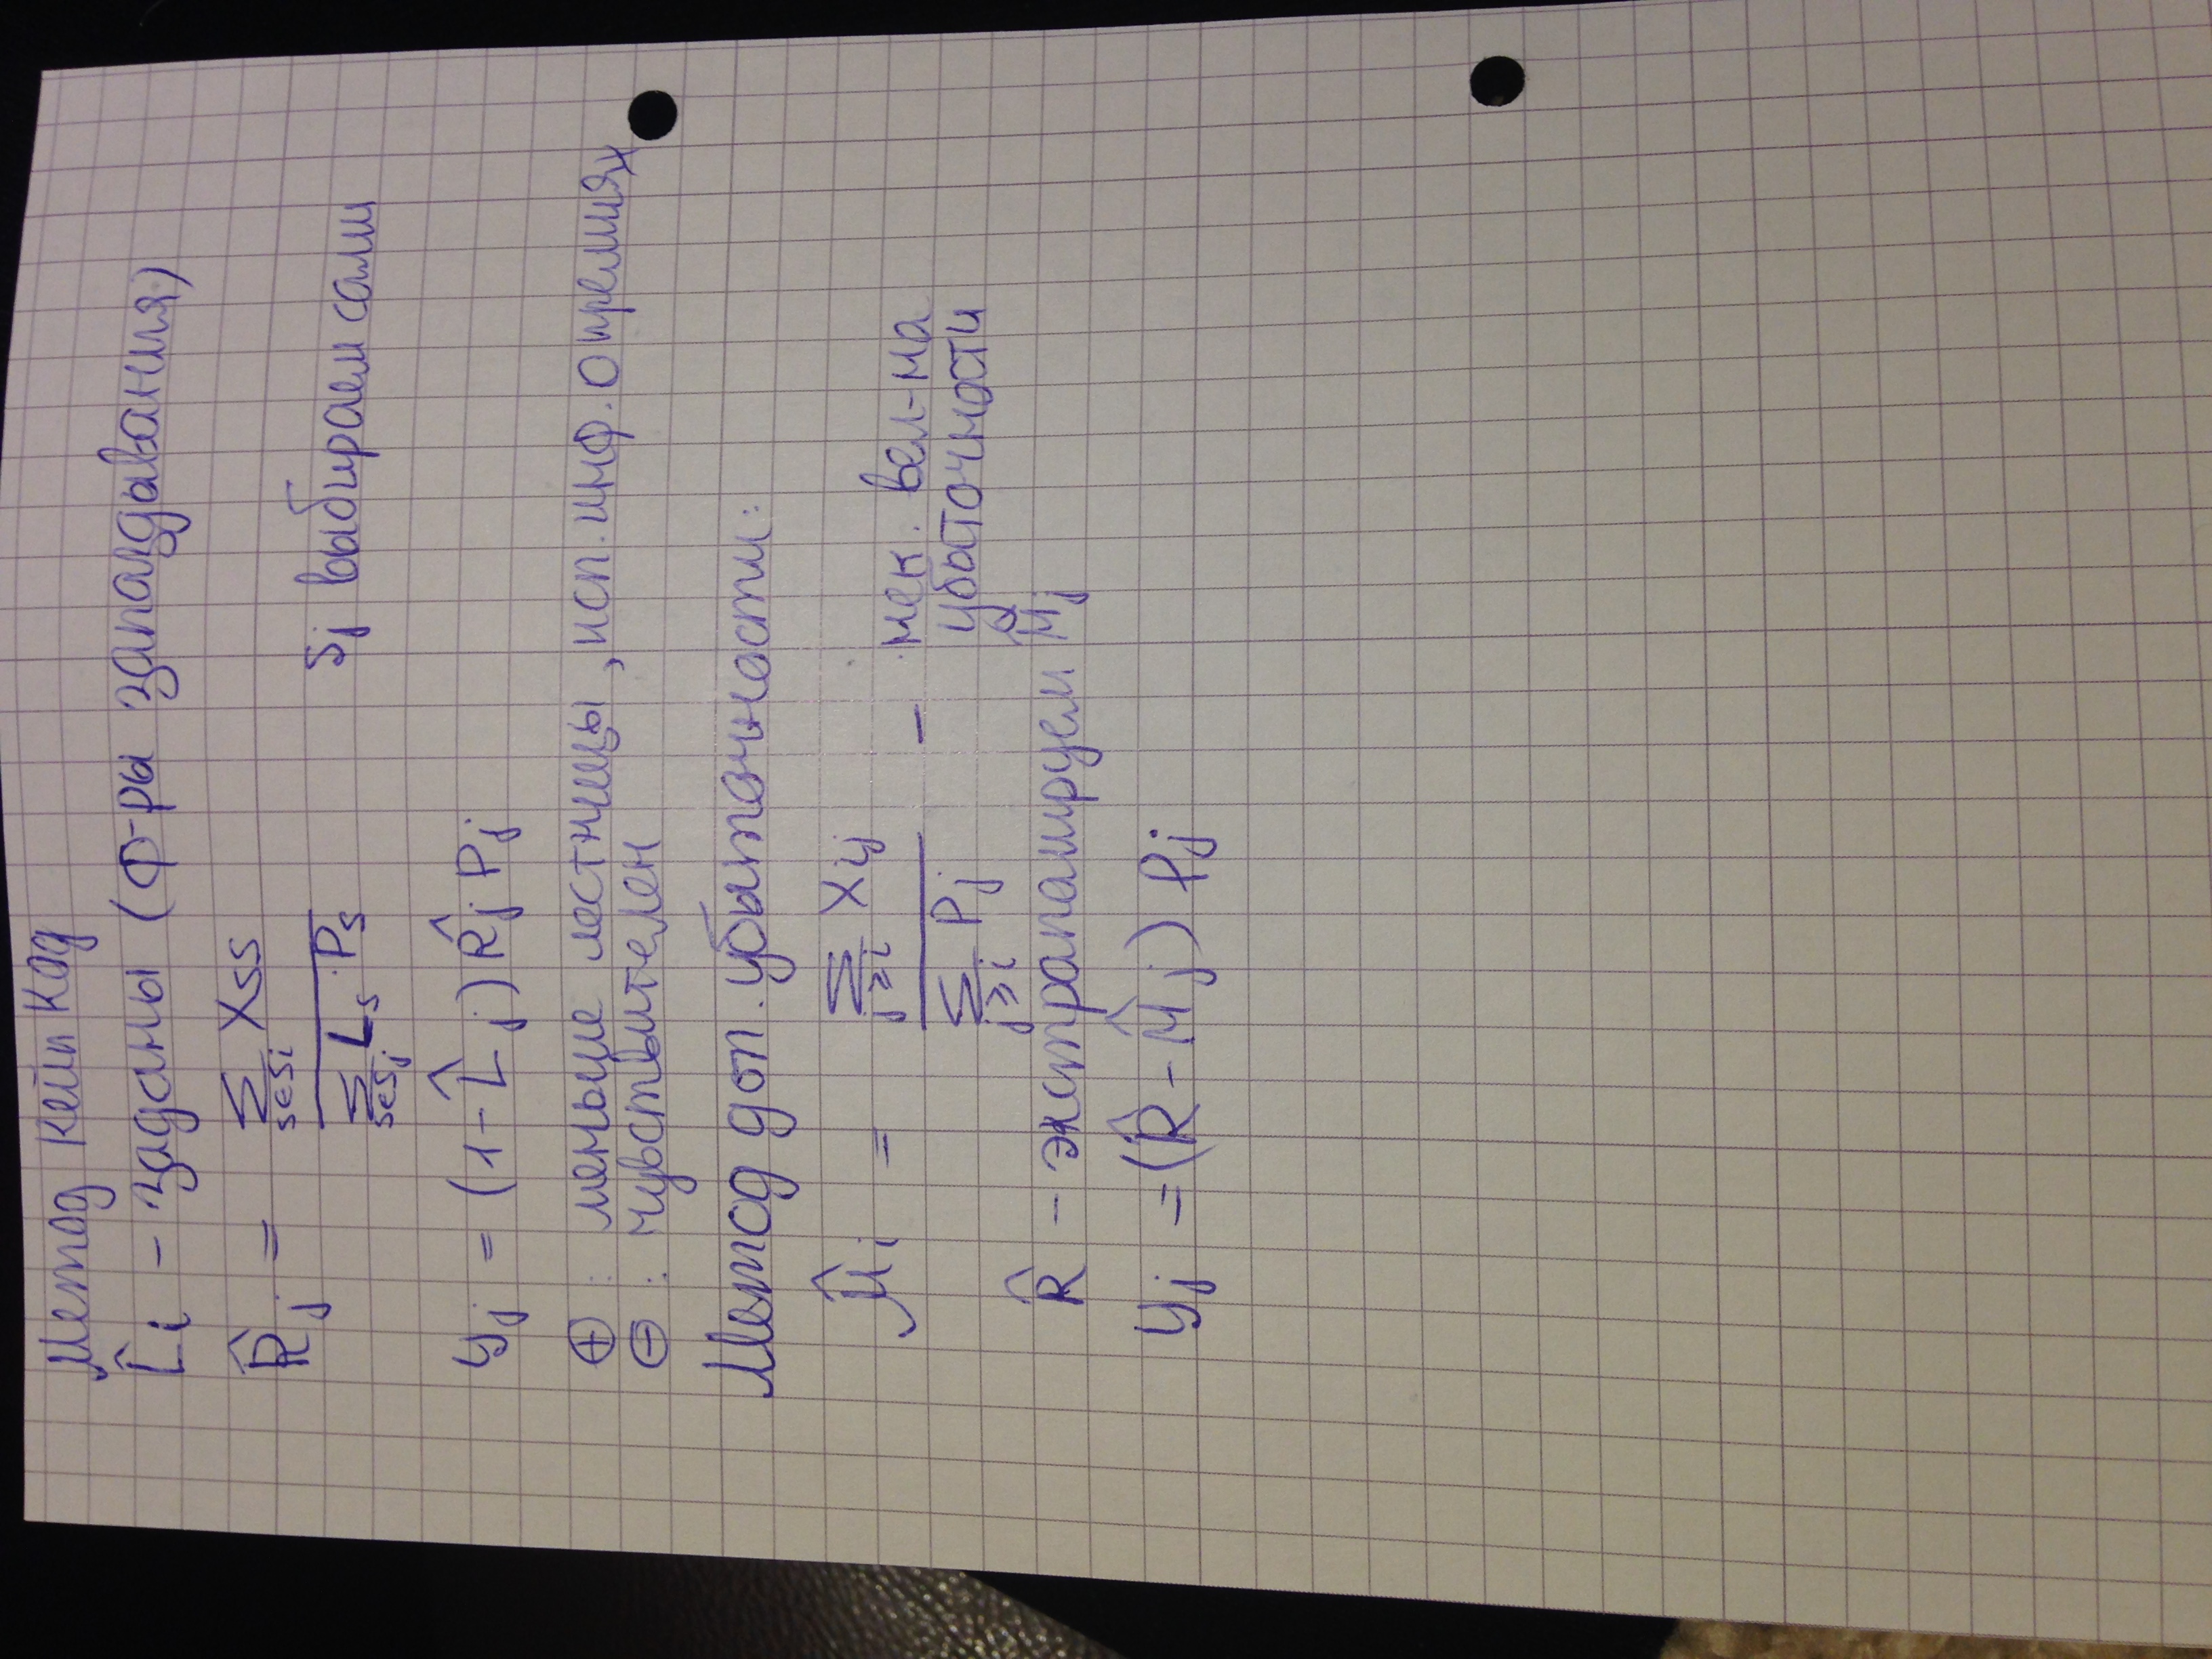 Метод Кейп Код
L̂i - заданы (ф-ры запаздывания)
R̂j = Σ s∈Si Xss / Σ s∈Sj Ls · Ps
Sj выбираем сами
yj = (1 - L̂j) R̂j Pj
⊕ : меньше лестницы, исп. инф. о премиях
⊖ : чувствителен
Метод доп. убыточности:
M̂i = Σ j≥i Xij / Σ j≥i Pj - нек. вел-на
убыточности
R̂ - экстраполируем M̂j
yj = (R̂ - M̂j) Pj